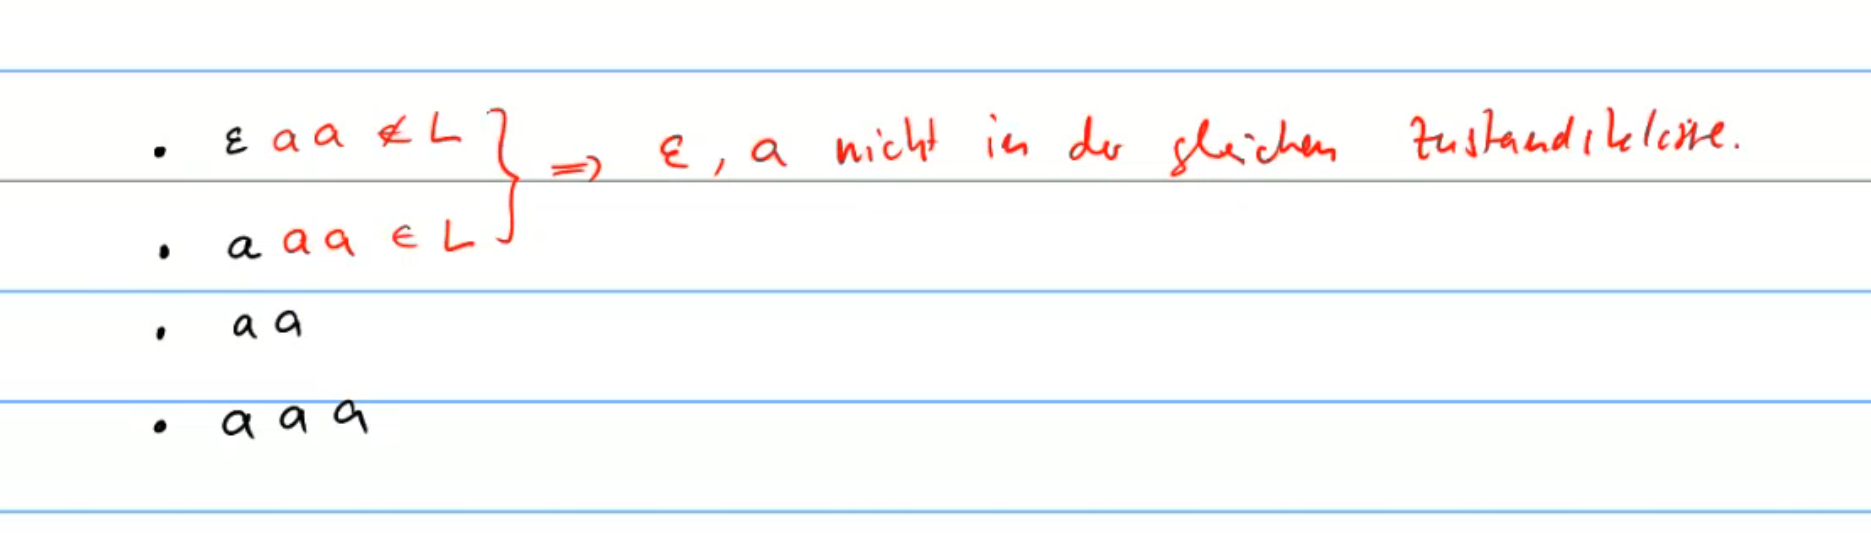 • ε a a ∉ L } ⇒ ε, a nicht in der gleichen Zustandsklasse.
• a a a ∈ L
• a a
• a a a